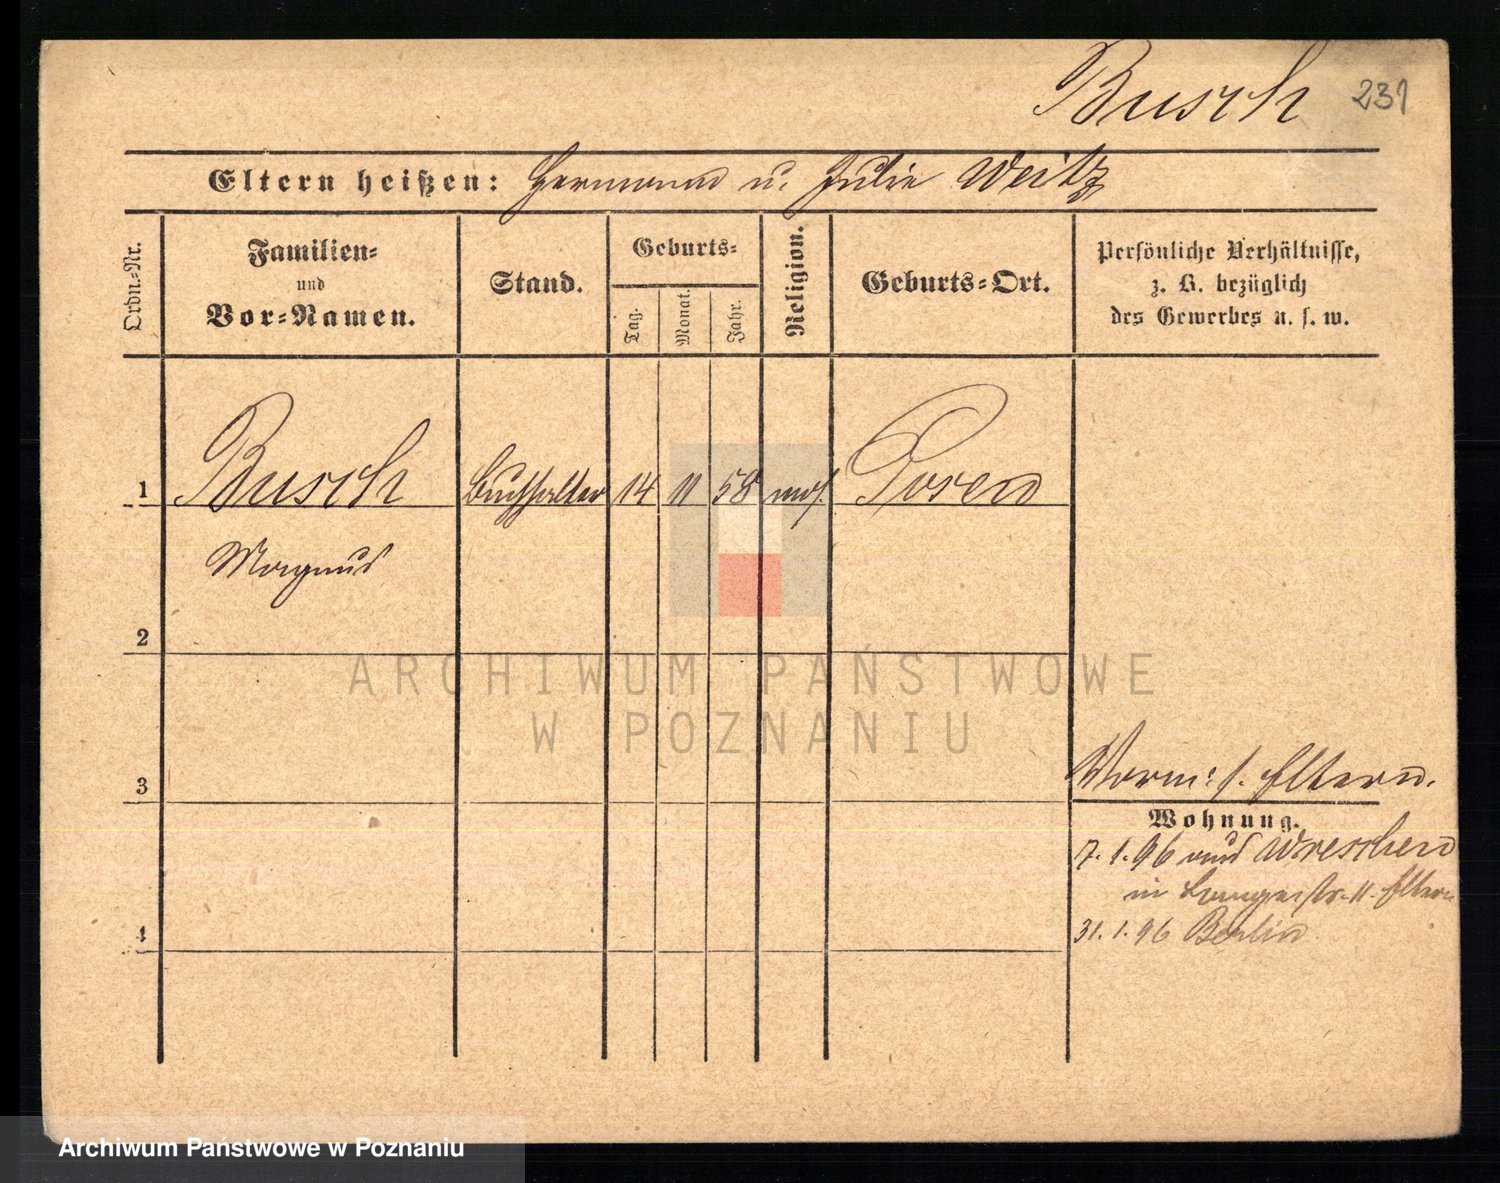 Busch 231
Eltern heißen: Hermann u. Julie Weitz
Ordn.-Nr.
Familien-
und
Vor-Namen.
Stand.
Geburts-
Tag.
Monat.
Jahr.
Religion.
Geburts-Ort.
Persönliche Verhältnisse,
z. B. bezüglich
des Gewerbes u. s. w.
1 Busch Buchhalter 14 11 58 mos. Posen
Magnus
2
ARCHIWUM PAŃSTWOWE
W POZNANIU
3
Vorm: s. Eltern.
Wohnung.
7. 1. 96 aus Wreschen
in Langestr. 11. Eltern
4
31. 1. 96 Berlin
Archiwum Państwowe w Poznaniu